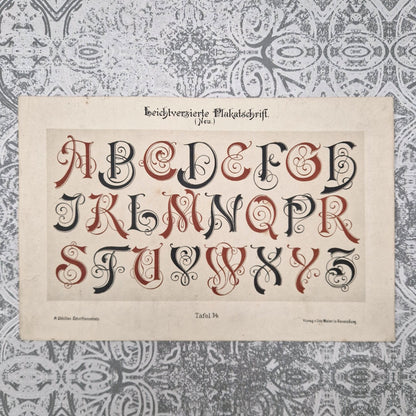 Leichtverzierte Plakatschrift.
(Neu.)
A B C D E F G H
I K L M N O P R
S T U V W X Y Z
Tafel 34.